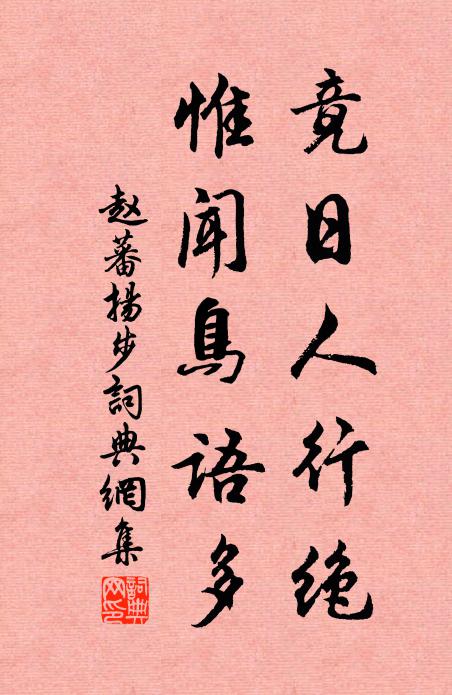 竟日人行绝
惟闻鳥语多
赵蕃揚步詞典網集
詞典网印